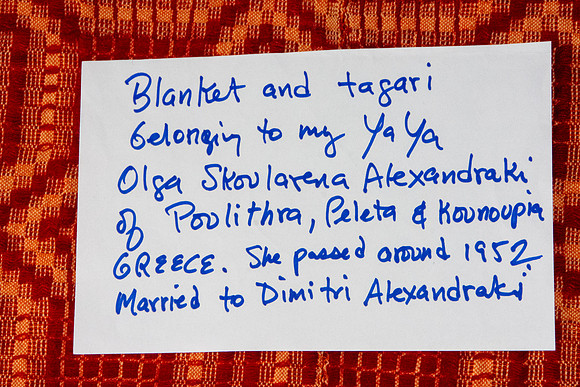 Blanket and tagari
belonging to my YaYa
Olga Skoularena Alexandraki
of Poulithra, Peleta & Kounoupia
GREECE. She passed around 1952
Married to Dimitri Alexandraki